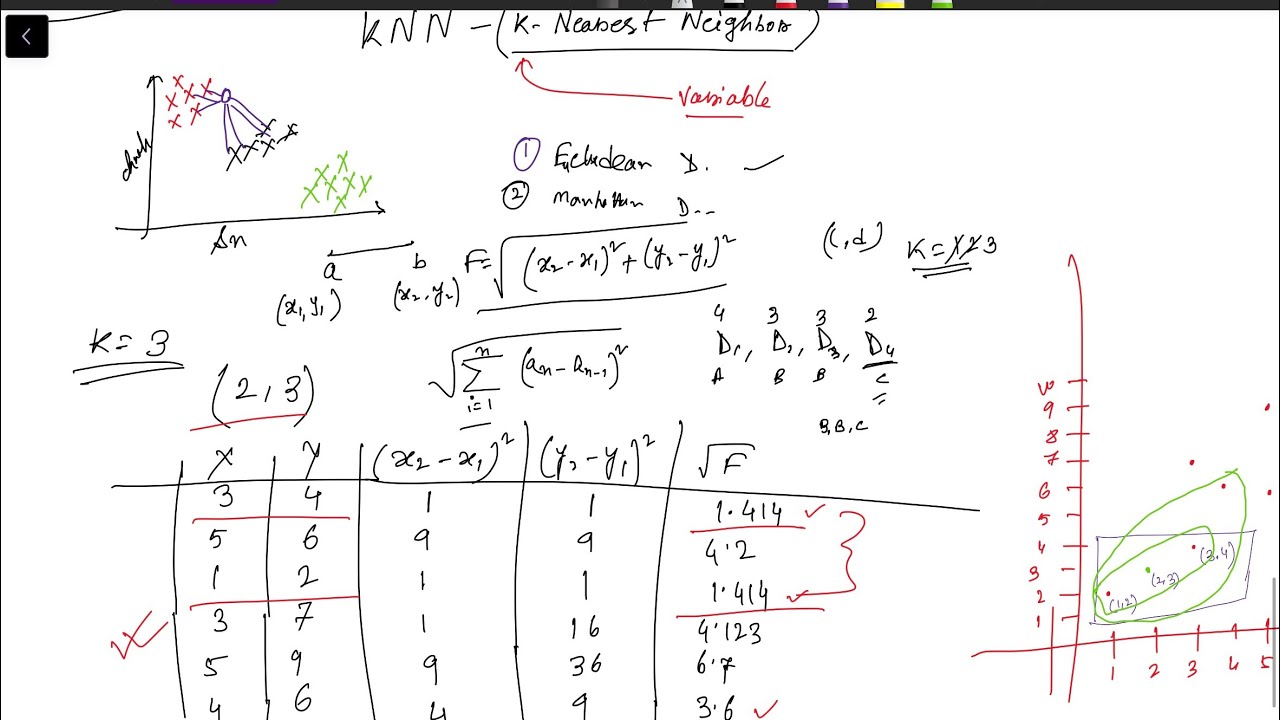 KNN - (K- Nearest Neighbor)
variable
1 Euclidean D.
2 Manhattan D..
a
b
(x1, y1)
(x2, y2)
F = √(x2 - x1)² + (y2 - y1)²
(c, d)
K = 1 2 3
K = 3
(2, 3)
√ n Σ i=1 (an - an-1)²
4 3 3 2
D1, D2, D3, D4
A B B C
B, B, C
X Y (x2 - x1)² (y2 - y1)² √F
3 4 1 1 1.414
5 6 9 9 4.2
1 2 1 1 1.414
3 7 1 16 4.123
5 9 9 36 6.7
4 6 4 9 3.6
10
9
8
7
6
5
4
3
2
1
(3,4)
(2,3)
(1,2)
1 2 3 4 5